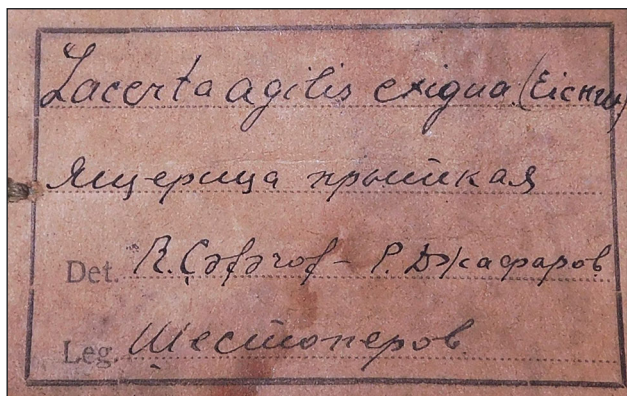 Lacerta agilis exigua (Eichw)
Ящерица прыткая
Det. R. Çəfərof - Р. Джафаров
Leg. Шестоперов